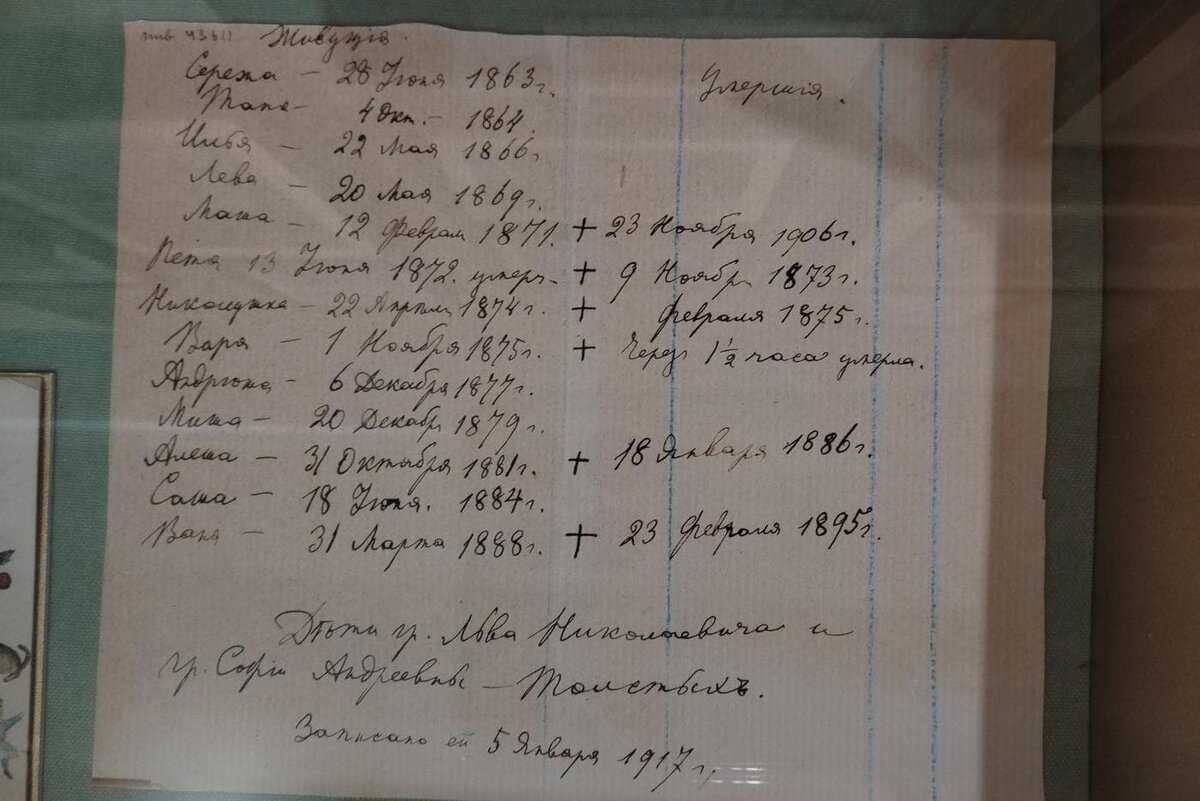 инв 43611
Живущiя.
Умершiя.
Сережа — 28 Iюня 1863 г.
Таня — 4 Окт. — 1864.
Илья — 22 Мая 1866 г.
Лева — 20 Мая 1869 г.
Маша — 12 Феврал 1871. + 23 Ноября 1906 г.
Петя 13 Iюня 1872. умеръ — + 9 Ноябр 1873 г.
Николушка — 22 Апреля 1874 г. + Февраля 1875 г.
Варя — 1 Ноября 1875 г. + Черезъ 1 ½ часа умерла.
Андрюша — 6 Декабря 1877 г.
Миша — 20 Декабр 1879 г.
Алеша — 31 Октября 1881 г. + 18 Января 1886 г.
Саша — 18 Iюня. 1884 г.
Ваня — 31 Марта 1888 г. + 23 Февраля 1895 г.
Дѣти гр. Льва Николаевича и
гр. Софiи Андреевны — Толстыхъ.
Записано ей 5 Января 1917 г.